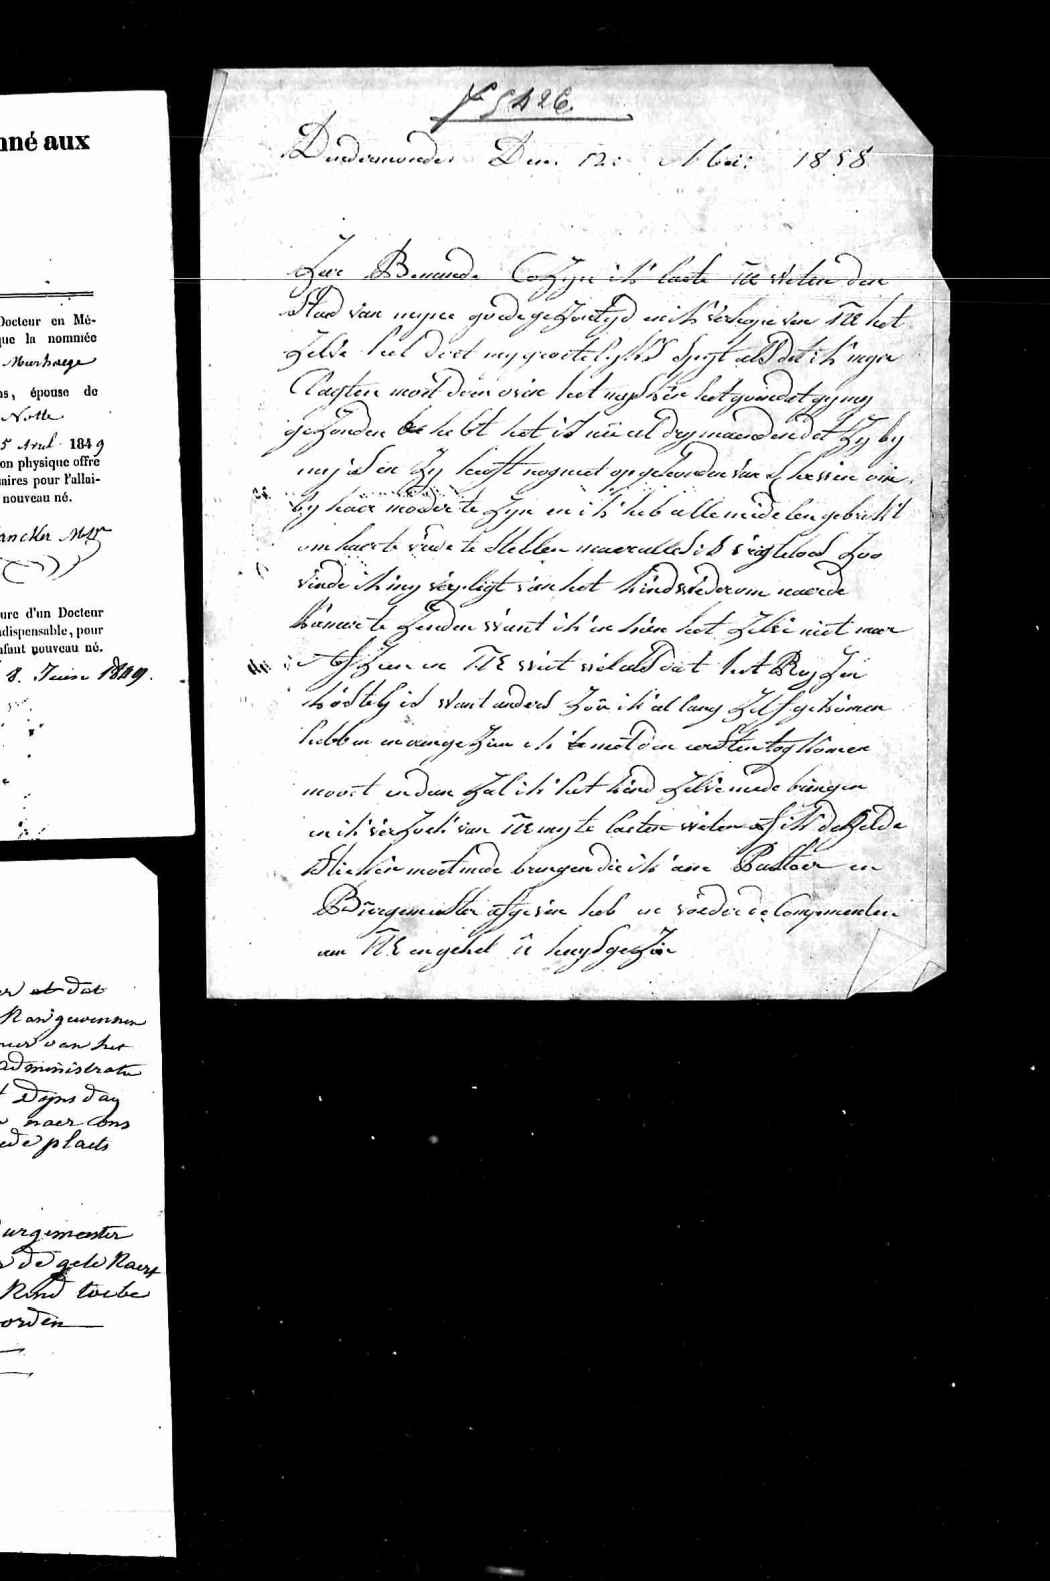 nné aux
Docteur en Mé-
que la nommée
Murhaege
ns, épouse de
Notte
5 Avril 1849
on physique offre
aires pour l'allai-
nouveau né.
ure d'un Docteur
ndispensable, pour
nfant nouveau né.
8. Juin 1849.
dat
Kan gewinnen
van het
administratie
Dynsdag
naer Ons
plaets
urgmeester
de gele Kaert
Kind toebe
orden
5426
Dendermonde Den 12: Mei: 1858
Zeer Beminde Cozyn ik laete UE weten den
Staed van myne goede gezontyd en ik verhope van UE het
Zelve heel doet my grootelyks Spyt als dat ik myn
Clagten moet doen over het mysken het gone dat gy my
gezonden hebt het is nu al dry maenden dat Zy by
my is en Zy heeft nog niet opgehouden van Schreeuwen om
by haer moeder te Zyn en ik heb alle midelen gebrukt
om haer te vrede te Stellen maer alles is vrugteloos Zoo
vinde ik my verpligt van het kind wederom naer de
kamer te Zenden want ik en kan het Zelve niet meer
Af Zien en UE weet wel als dat het Ryzen
kostelyk is want anders Zou ik al lang Zelf gekomen
hebben en aengezien ik moet den eersten tog komen
moet en dan Zal ik het kind Zelve mede brengen
en ik verzoek van UE my te laeten weten of ik de Zelde
Stukken moet mede brengen die ik aen Pastoor en
Burgemeester afgeven heb en vorder de Complementen
aen UE en geheel u huysgezin